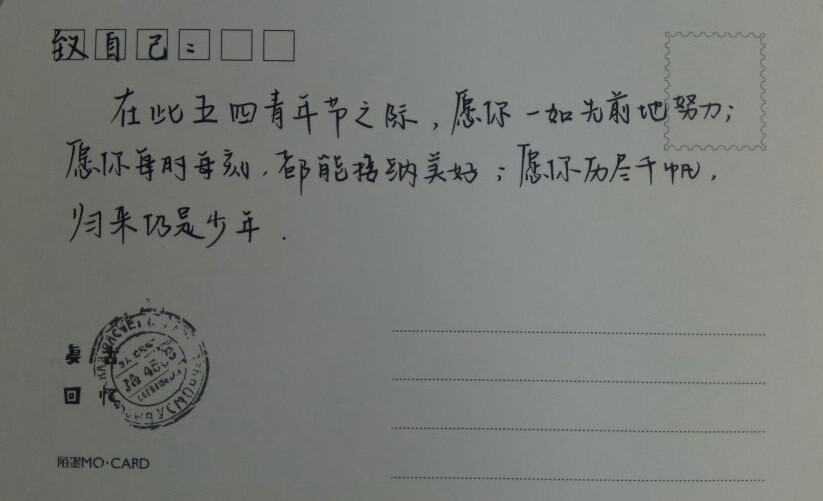 致自己：
在此五四青年节之际，愿你一如先前地努力；
愿你每时每刻，都能接纳美好；愿你历尽千帆，
归来仍是少年．
回忆
陌墨MO·CARD